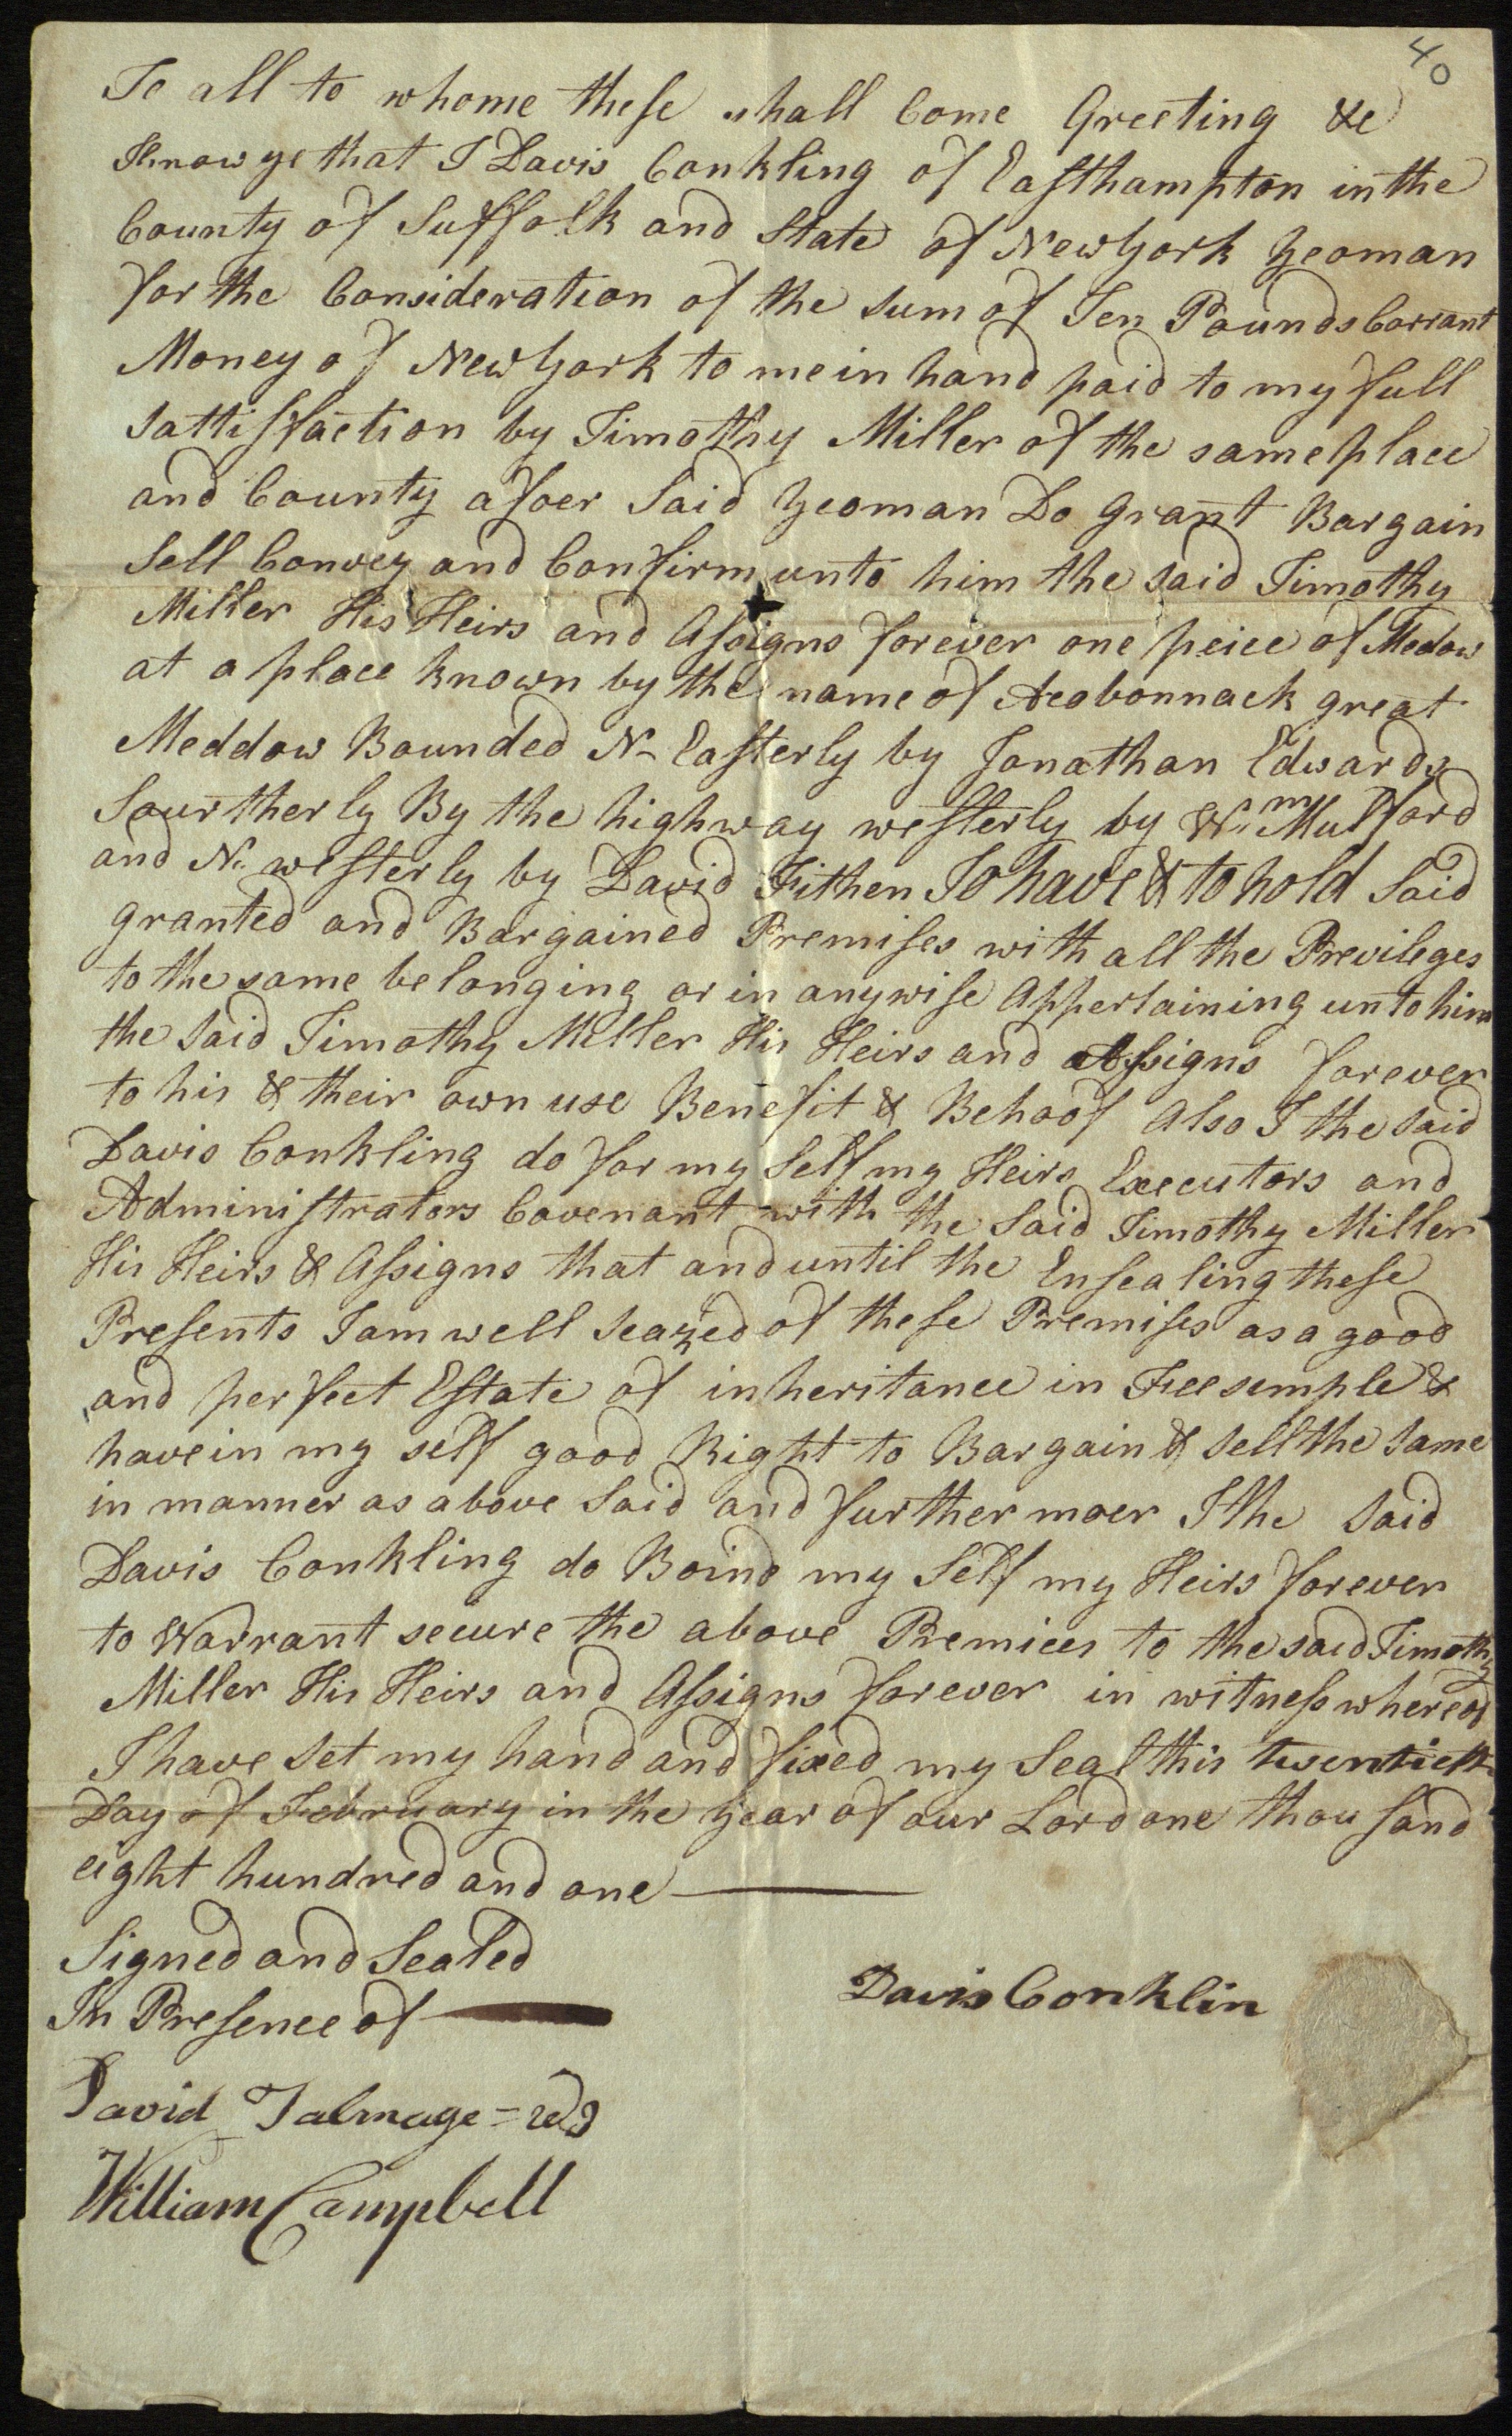 40
To all to whome these shall Come Greeting &c
Know ye that I Davis Conkling of Easthampton in the
County of Suffolk and State of New York Yeoman
for the Consideration of the sum of Ten Pounds Corrant
Money of New York to me in hand paid to my full
sattisfaction by Timothy Miller of the same place
and County afoer Said Yeoman Do Grant Bargain
Sell Convey and Confirm unto him the said Timothy
Miller His Heirs and Assigns forever one peice of Medow
at a place known by the name of Acobonnack great
Meddow Bounded N- Easterly by Jonathan Edwards
Sourtherly By the highway westerly by Wm Mulford
and N. westerly by David Fithen To have & to hold Said
granted and Bargained Premises with all the Previleges
to the same belonging or in anywise Appertaining unto him
the said Timothy Miller His Heirs and Assigns forever
to his & their own use Benefit & Behoof Also I the said
Davis Conkling do for my Self my Heirs Executors and
Administrators Covenant with the Said Timothy Miller
His Heirs & Assigns that and until the Ensealing these
Presents I am well seazed of these Premises as a good
and perfect Estate of inheritance in Fee semple &
have in my self good Right to Bargain & sell the same
in manner as above Said and further moer I the Said
Davis Conkling do Boind my Self my Heirs forever
to Warrant secure the above Premices to the said Timothy
Miller His Heirs and Assigns forever in witness whereof
I have set my hand and fixed my Seal this twentieth
Day of February in the year of our Lord one thousand
eight hundred and one
Signed and Sealed
In Presence of
Davis Conklin
David Talmage
William Campbell